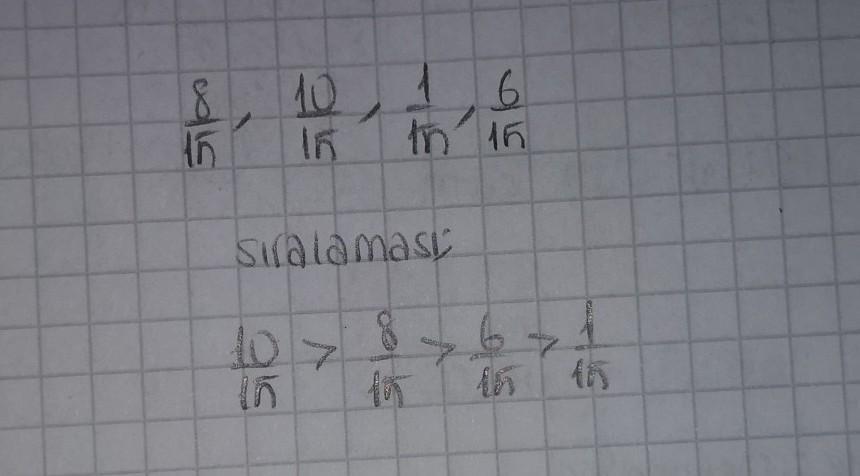 8/15, 10/15, 1/15, 6/15
sıralaması:
10/15 > 8/15 > 6/15 > 1/15